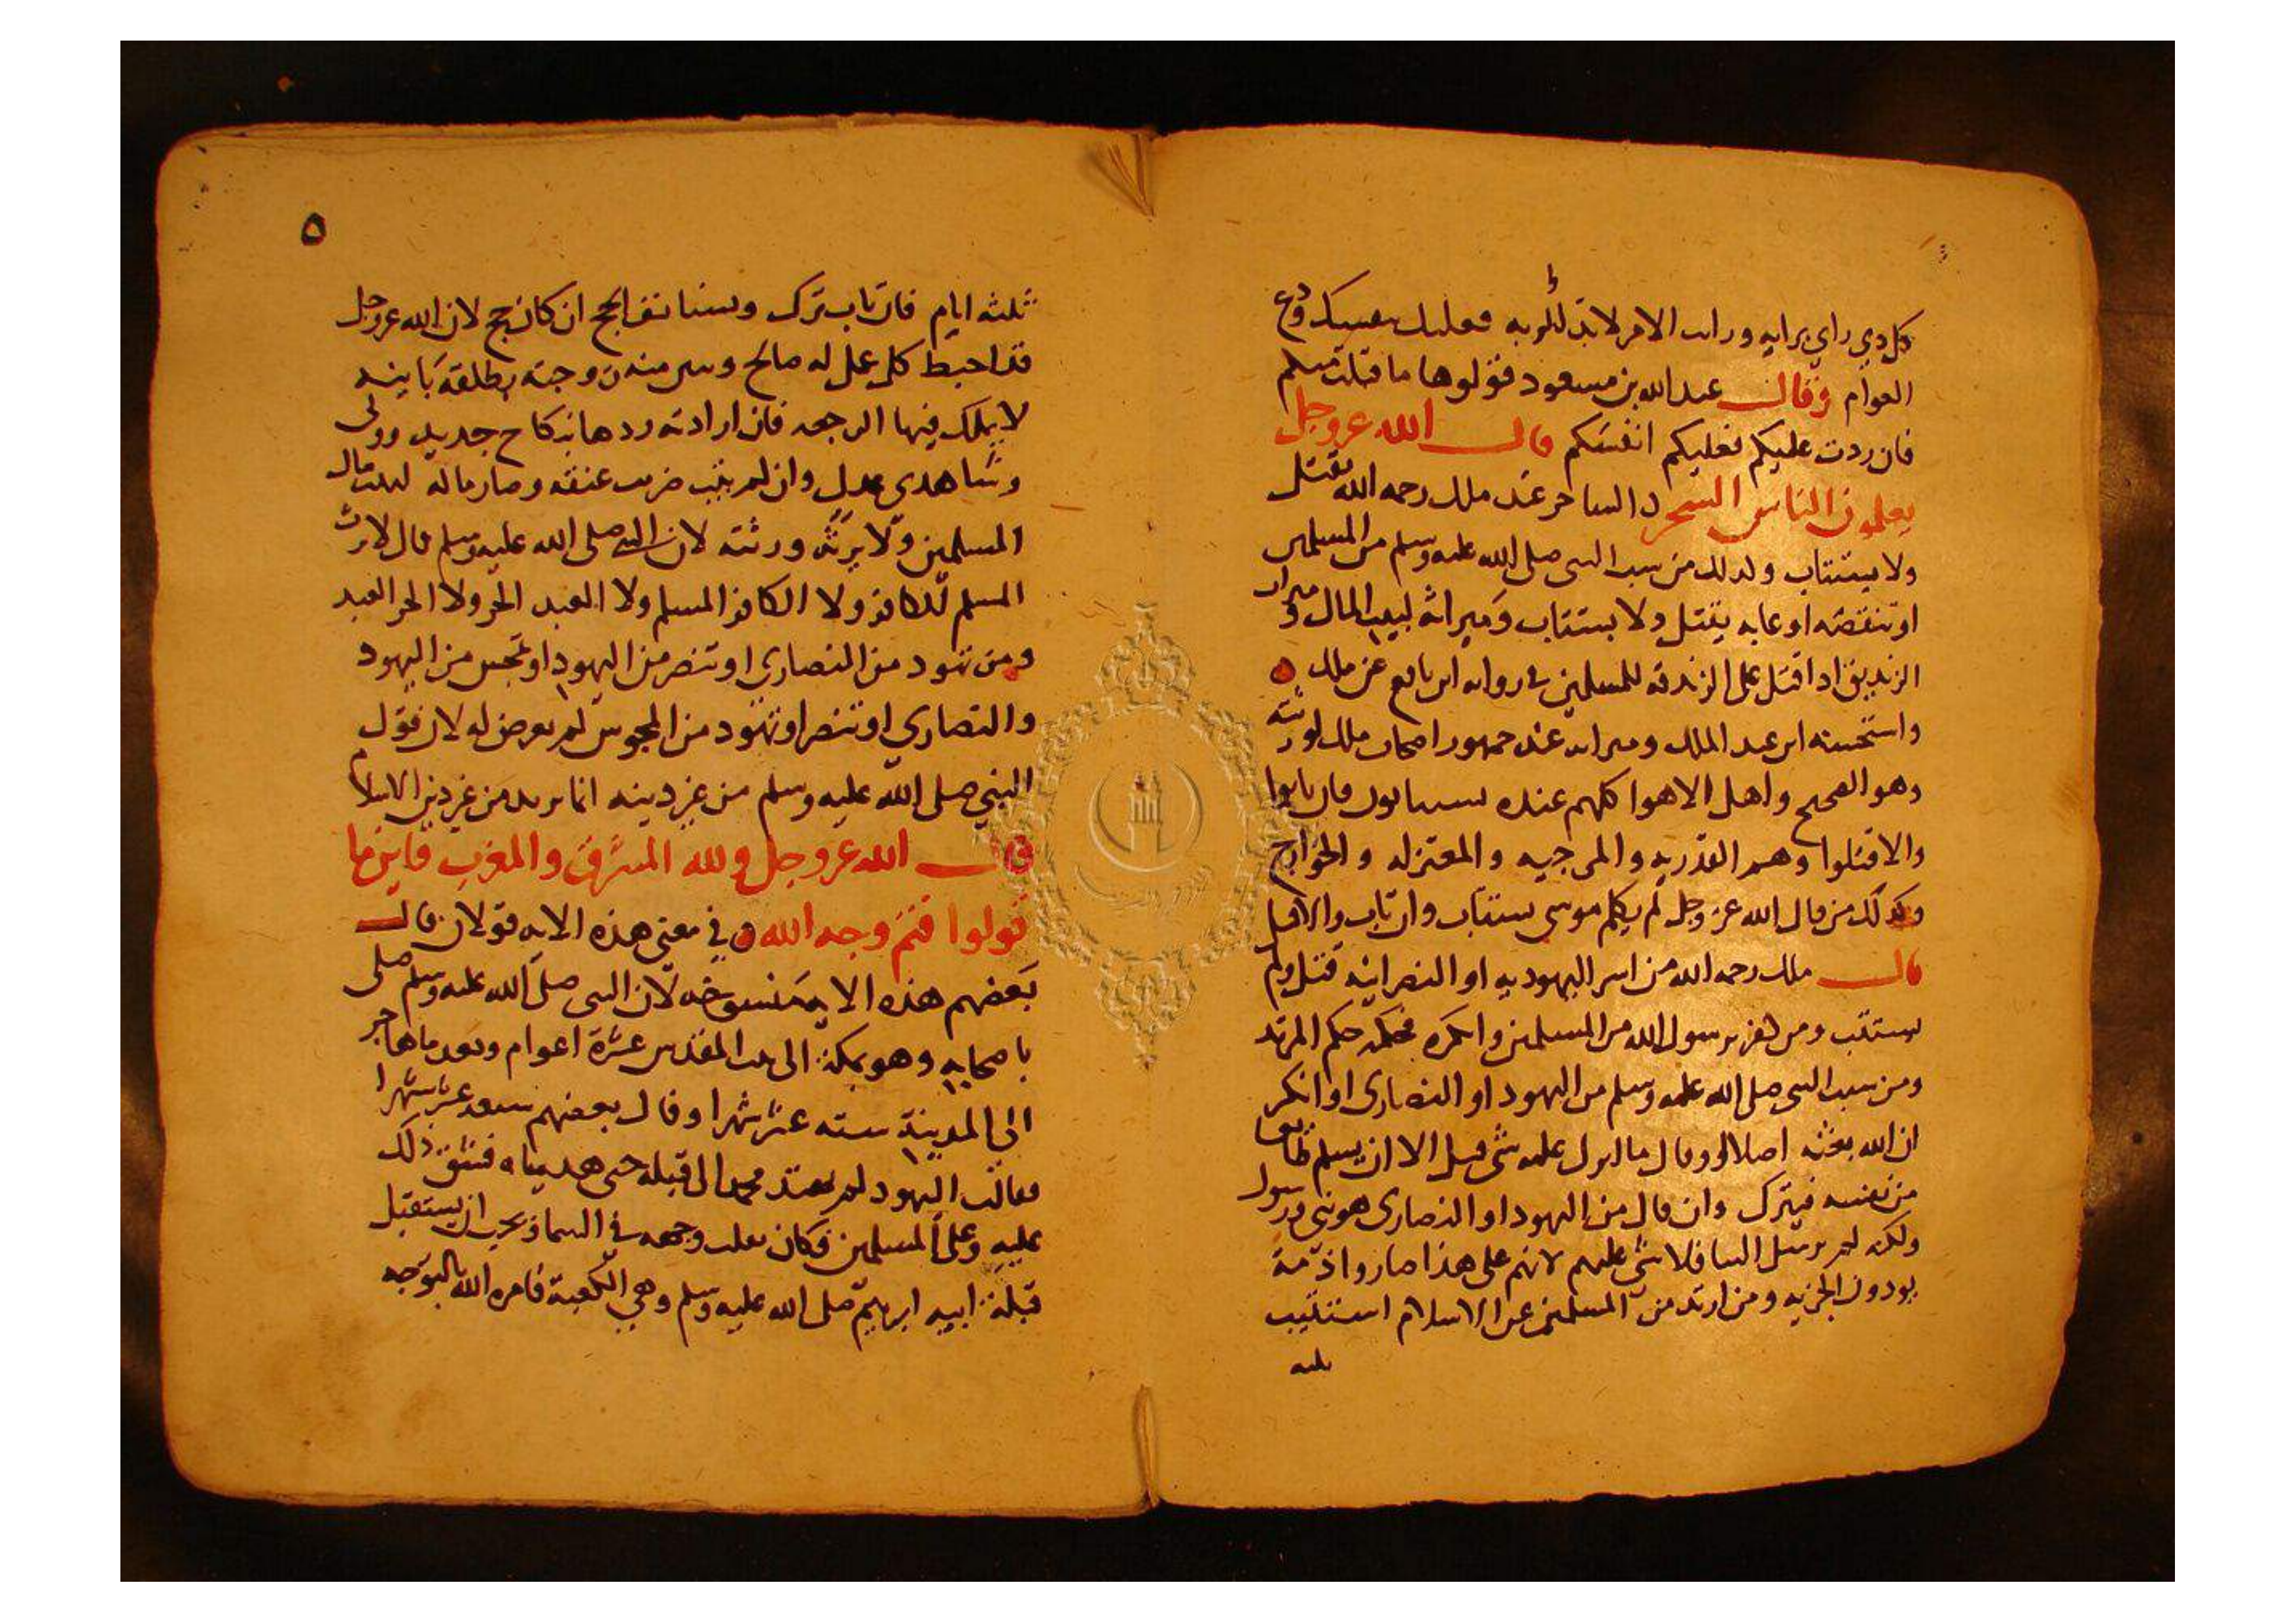 كل ذي راي برايه ورات الامر لابد لك به فعليك بنفسك ودع
العوام وقال عبد الله بن مسعود قولوها ما قبلت منكم
فان ردت عليكم فعليكم انفسكم قال الله عز وجل
يعلمون الناس السحر والساحر عند ملك رحمه الله يقتل
ولا يستتاب وكذلك من سب النبي صلى الله عليه وسلم من المسلمين
او تنقصه او عابه يقتل ولا يستتاب وميراثه لبيت المال وميراث
الزنديق اذا قتل على الزندقة للمسلمين في روايه ابن نافع عن ملك
واستحسنه ابن عبد الملك وميراثه عند جمهور اصحاب ملك لورثته
وهو الصحيح واهل الاهوا كلهم عنده يستتابون فان تابوا
والا قتلوا وهم القدريه والمرجيه والمعتزله والخوارج
وكذلك من قال الله عز وجل لم يكلم موسى يستتاب وان تاب والا قتل
قال ملك رحمه الله من اسر اليهوديه او النصرانيه قتل ولم
يستتب ومن كفر برسول الله من المسلمين وانكره فحكمه حكم المرتد
ومن سب النبي صلى الله عليه وسلم من اليهود او النصارى او انكر
ان الله بعثه اصلا او قال ما انزل عليه شي قتل الا ان يسلم طايعا
من نفسه فيترك وان قال من اليهود او النصارى هو نبي ورسول
ولكنه لم يرسل الينا فلا شي عليهم لانهم على هذا صاروا ذمة
يودون الجزيه ومن ارتد من المسلمين عن الاسلام استتيب
ثلثه
٥
ثلثه ايام فان تاب ترك ويستانف الحج ان كان حج لان الله عز وجل
قد احبط كل عمل له صالح وبين منه زوجته بطلقة باينه
لا يملك فيها الرجعه فان ارادته ردها بنكاح جديد وولى
وشاهدي عدل وان لم يتب ضربت عنقه وصار ماله لبيت مال
المسلمين ولا يرثه ورثته لان النبي صلى الله عليه وسلم قال لا يرث
المسلم الكافر ولا الكافر المسلم ولا العبد الحر ولا الحر العبد
ومن تهود من النصاري او تنصر من اليهود او تمجس من اليهود
والنصاري او تنصر او تهود من المجوس لم يعرض له لان قول
النبي صلى الله عليه وسلم من غير دينه انما يريد من غير دين الاسلام
قال الله عز وجل ولله المشرق والمغرب فاينما
تولوا فثم وجه الله وفي معنى هذه الايه قولان قال
بعضهم هذه الاية منسوخه لان النبي صلى الله عليه وسلم صلى
باصحابه وهو بمكة الى بيت المقدس عشرة اعوام وبعد ما هاجر
الى المدينة سته عشر شهرا وقال بعضهم سبعه عشر شهرا
فقالت اليهود لم يهتد محمد الى قبلة حتى هديناه فشق ذلك
عليه وعلى المسلمين فكان يقلب وجهه في السما ذ يحب ان يستقبل
قبلة ابيه ابرهيم صلى الله عليه وسلم وهي الكعبة فامره الله بالتوجه